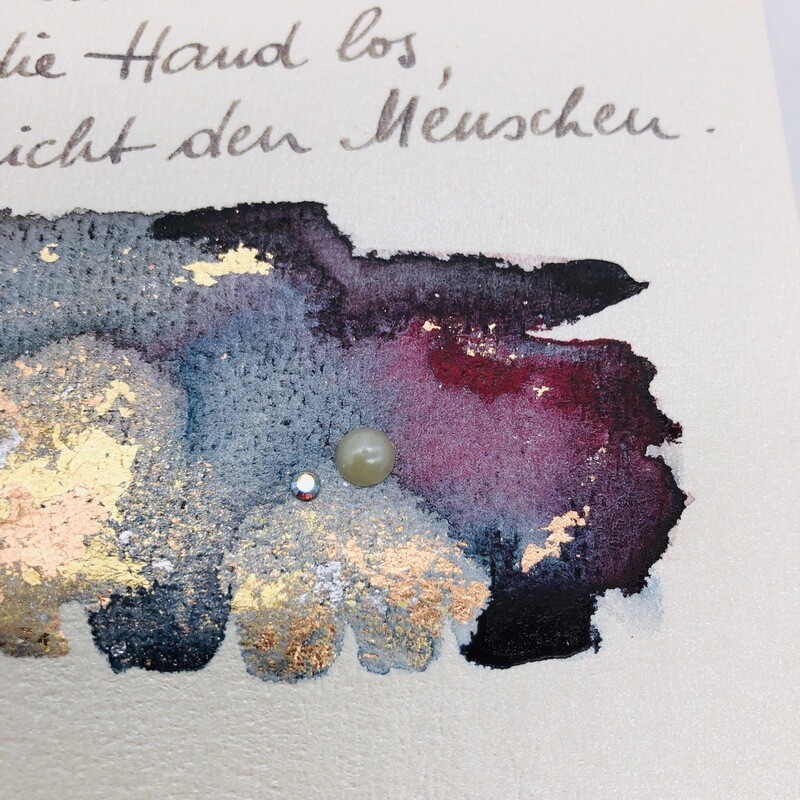 die Hand los,
nicht den Menschen.